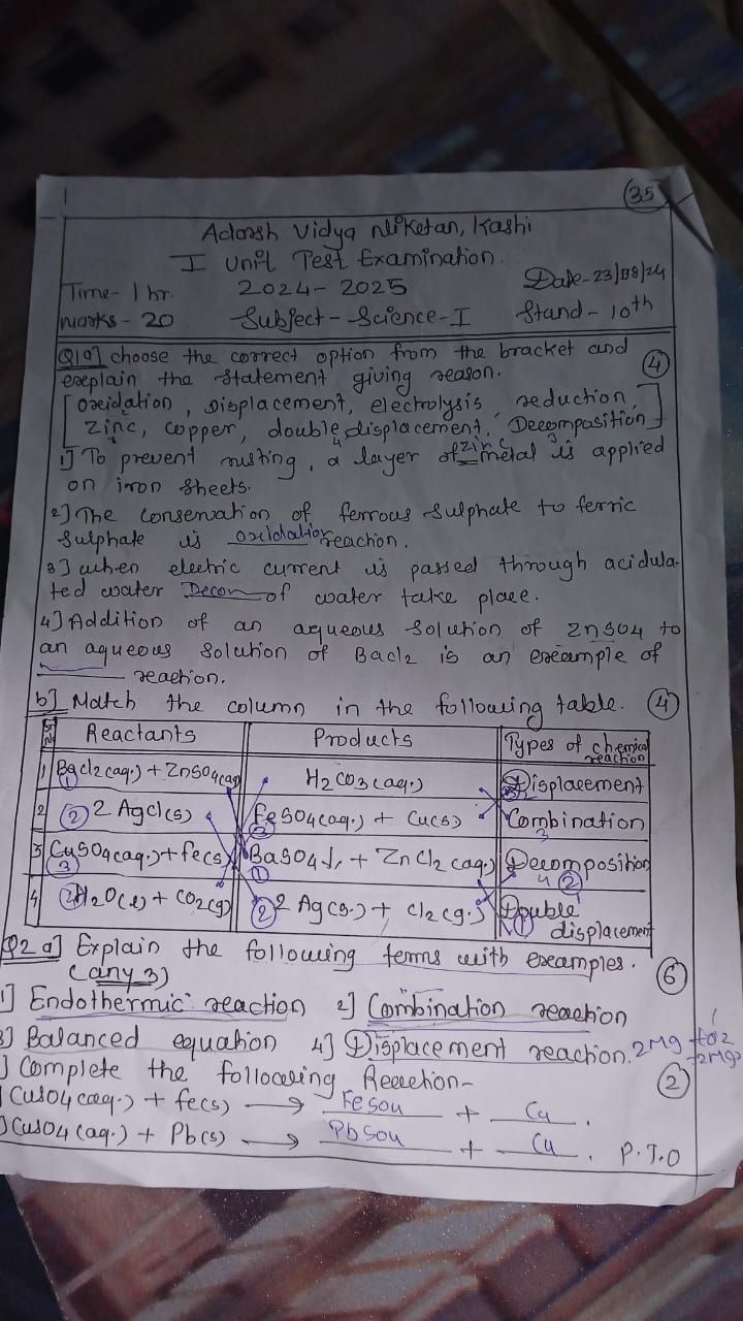 35
Adarsh Vidya Niketan, Kashi
I Unit Test Examination.
Time- 1 hr. 2024-2025 Date-23/08/24
Marks-20 Subject-Science-I Stand-10th
Q1a] choose the correct option from the bracket and
explain the statement giving reason. 4
[oxidation, Displacement, electrolysis, reduction,
Zinc, copper, double displacement, Decomposition]
1] To prevent rusting, a layer of zinc metal is applied
on iron sheets.
2] The conservation of ferrous sulphate to ferric
sulphate is oxidation reaction.
3] when electric current is passed through acidula-
ted water Decom of water take place.
4] Addition of an aqueous solution of ZnSO4 to
an aqueous solution of Bacl2 is an example of
reaction.
b] Match the column in the following table. 4
Reactants Products Types of chemical reaction
1 BaCl2(aq.) + ZnSO4(aq) H2CO3(aq.) Displacement
2 2 AgCl(s) FeSO4(aq.) + Cu(s) Combination
3 CuSO4(aq.)+fe(s) BaSO4↓ + ZnCl2(aq.) Decomposition
4 H2O(l) + CO2(g) 2 Ag(s.) + Cl2(g.) Double displacement
Q2 a] Explain the following terms with examples. 6
(any 3)
1] Endothermic reaction 2] Combination reaction
3] Balanced equation 4] Displacement reaction. 2Mg + O2
] Complete the following Reaction- 2
] CuSO4(aq.) + fe(s) → Feso4 + Cu.
] CuSO4(aq.) + Pb(s) → Pbso4 + Cu. P.T.O